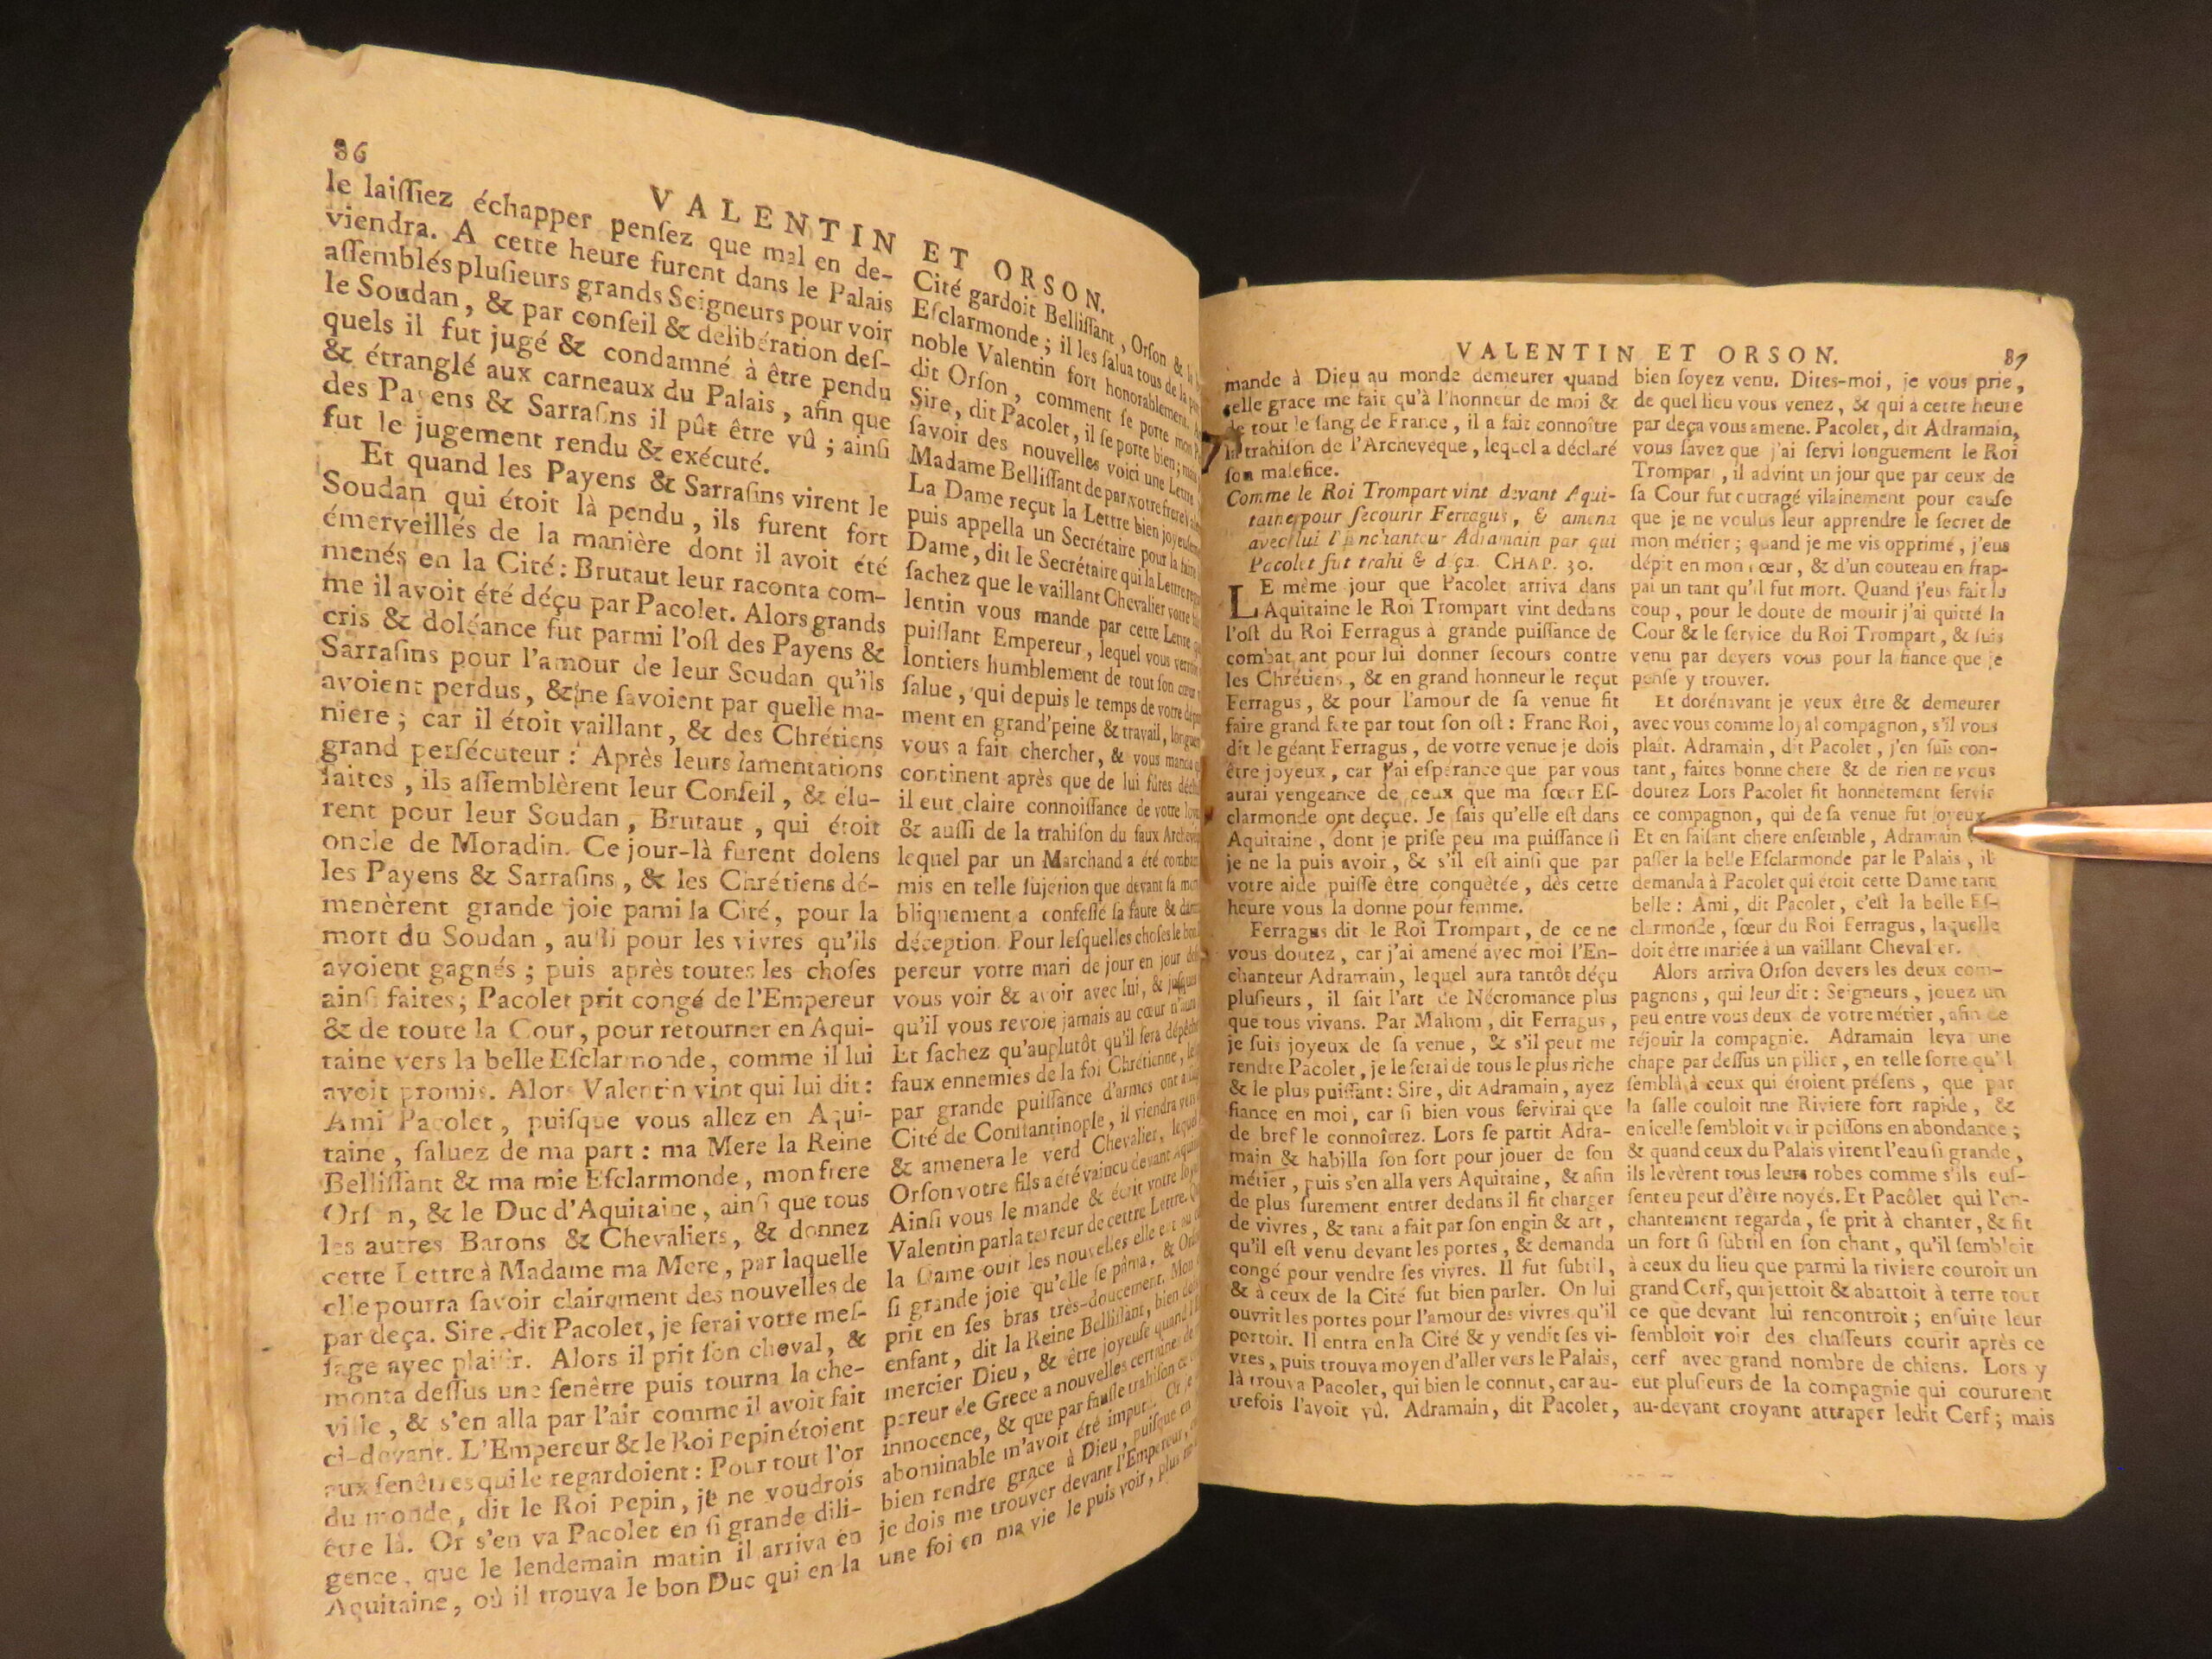 86
VALENTIN ET ORSON.
le laiſſiez échapper penſez que mal en de-
viendra. A cette heure furent dans le Palais
aſſemblés pluſieurs grands Seigneurs pour voir
le Soudan, & par conſeil & délibération deſ-
quels il fut jugé & condamné à être pendu
& étranglé aux carneaux du Palais, afin que
des Payens & Sarraſins il pût être vû ; ainſi
fut le jugement rendu & exécuté.
Et quand les Payens & Sarraſins virent le
Soudan qui étoit là pendu, ils furent fort
émerveillés de la manière dont il avoit été
menés en la Cité : Brutaut leur raconta com-
me il avoit été déçu par Pacolet. Alors grands
cris & doléance fut parmi l'oſt des Payens &
Sarraſins pour l'amour de leur Soudan qu'ils
avoient perdus, & ne ſavoient par quelle ma-
niere ; car il étoit vaillant, & des Chrétiens
grand perſécuteur : Après leurs lamentations
faites, ils aſſemblèrent leur Conſeil, & élu-
rent pour leur Soudan, Brutaut, qui étoit
oncle de Moradin. Ce jour-là furent dolens
les Payens & Sarraſins, & les Chrétiens dé-
menèrent grande joie pami la Cité, pour la
mort du Soudan, auſſi pour les vivres qu'ils
avoient gagnés ; puis après toutes les choſes
ainſi faites ; Pacolet prit congé de l'Empereur
& de toute la Cour, pour retourner en Aqui-
taine vers la belle Eſclarmonde, comme il lui
avoit promis. Alors Valentin vint qui lui dit :
Ami Pacolet, puiſque vous allez en Aqui-
taine, ſaluez de ma part : ma Mere la Reine
Belliſſant & ma mie Eſclarmonde, mon frere
Orſon, & le Duc d'Aquitaine, ainſi que tous
les autres Barons & Chevaliers, & donnez
cette Lettre à Madame ma Mere, par laquelle
elle pourra ſavoir clairement des nouvelles de
par deça. Sire, dit Pacolet, je ſerai votre meſ-
ſage avec plaiſir. Alors il prit ſon cheval, &
monta deſſus une fenêtre puis tourna la che-
ville, & s'en alla par l'air comme il avoit fait
ci-devant. L'Empereur & le Roi Pepin étoient
aux fenêtres qui le regardoient : Pour tout l'or
du monde, dit le Roi Pepin, je ne voudrois
être là. Or s'en va Pacolet en ſi grande dili-
gence, que le lendemain matin il arriva en
Aquitaine, où il trouva le bon Duc qui en la
Cité gardoit Belliſſant, Orſon & la
Eſclarmonde ; il les ſalua tous de la
noble Valentin fort honorablement.
dit Orſon, comment ſe porte mon
Sire, dit Pacolet, il ſe porte bien ; mais
ſavoir des nouvelles voici une Lettre
Madame Belliſſant de par votre frere
La Dame reçut la Lettre bien joyeuſement
puis appella un Secrétaire pour la faire
Dame, dit le Secrétaire qui la Lettre
ſachez que le vaillant Chevalier votre
lentin vous mande par cette Lettre
puiſſant Empereur, lequel vous
lontiers humblement de tout ſon cœur
ſalue, qui depuis le temps de votre
ment en grand'peine & travail,
vous a fait chercher, & vous mande
continent après que de lui fûtes
il eut claire connoiſſance de votre
& auſſi de la trahiſon du faux
lequel par un Marchand a été
mis en telle ſujetion que devant ſa
bliquement a confeſſé ſa faute &
déception. Pour leſquelles choſes le
pereur votre mari de jour en jour
vous voir & avoir avec lui, &
qu'il vous revoie jamais au cœur
Et ſachez qu'auplutôt qu'il ſera
faux ennemies de la foi Chrétienne,
par grande puiſſance d'armes ont
Cité de Conſtantinople, il viendra
& amenera le verd Chevalier, lequel
Orſon votre fils a été vaincu devant
Ainſi vous le mande & écrit votre
Valentin par la terreur de cettre Lettre.
la Dame ouit les nouvelles elle eut
ſi grande joie qu'elle ſe pâma, &
prit en ſes bras très-doucement. Mon
enfant, dit la Reine Belliſſant, bien
mercier Dieu, & être joyeuſe quand
pereur de Grece a nouvelles certaines de
innocence, & que par fauſſe trahiſon
abominable m'avoit été imputé. Or
bien rendre grace à Dieu, puiſque
je dois me trouver devant l'Empereur,
une foi en ma vie le puis voir, plus
VALENTIN ET ORSON. 87
mande à Dieu au monde demeurer quand
telle grace me fait qu'à l'honneur de moi &
de tout le ſang de France, il a fait connoître
la trahiſon de l'Archevêque, lequel a déclaré
ſon malefice.
Comme le Roi Trompart vint devant Aqui-
taine pour ſecourir Ferragus, & amena
avec lui l'Enchanteur Adramain par qui
Pacolet fut trahi & déça. CHAP. 30.
LE même jour que Pacolet arriva dans
Aquitaine le Roi Trompart vint dedans
l'oſt du Roi Ferragus à grande puiſſance de
combattant pour lui donner ſecours contre
les Chrétiens, & en grand honneur le reçut
Ferragus, & pour l'amour de ſa venue fit
faire grand fete par tout ſon oſt : Franc Roi,
dit le géant Ferragus, de votre venue je dois
être joyeux, car j'ai eſpérance que par vous
aurai vengeance de ceux que ma ſœur Eſ-
clarmonde ont deçue. Je ſais qu'elle eſt dans
Aquitaine, dont je priſe peu ma puiſſance ſi
je ne la puis avoir, & s'il eſt ainſi que par
votre aide puiſſe être conquêtée, dès cette
heure vous la donne pour femme.
Ferragus dit le Roi Trompart, de ce ne
vous doutez, car j'ai amené avec moi l'En-
chanteur Adramain, lequel aura tantôt déçu
pluſieurs, il fait l'art de Nécromance plus
que tous vivans. Par Mahom, dit Ferragus,
je ſuis joyeux de ſa venue, & s'il peut me
rendre Pacolet, je le ferai de tous le plus riche
& le plus puiſſant : Sire, dit Adramain, ayez
fiance en moi, car ſi bien vous ſervirai que
de bref le connoîtrez. Lors ſe partit Adra-
main & habilla ſon ſort pour jouer de ſon
métier, puis s'en alla vers Aquitaine, & afin
de plus ſurement entrer dedans il fit charger
de vivres, & tant a fait par ſon engin & art,
qu'il eſt venu devant les portes, & demanda
congé pour vendre ſes vivres. Il fut ſubtil,
& à ceux de la Cité fut bien parler. On lui
ouvrit les portes pour l'amour des vivres qu'il
portoit. Il entra en la Cité & y vendit ſes vi-
vres, puis trouva moyen d'aller vers le Palais,
là trouva Pacolet, qui bien le connut, car au-
trefois l'avoit vû. Adramain, dit Pacolet,
bien ſoyez venu. Dites-moi, je vous prie,
de quel lieu vous venez, & qui à cette heure
par deça vous amene. Pacolet, dit Adramain,
vous ſavez que j'ai ſervi longuement le Roi
Trompart, il advint un jour que par ceux de
ſa Cour fut outragé vilainement pour cauſe
que je ne voulus leur apprendre le ſecret de
mon métier ; quand je me vis opprimé, j'eus
dépit en mon cœur, & d'un couteau en frap-
pai un tant qu'il fut mort. Quand j'eus fait le
coup, pour le doute de mourir j'ai quitté la
Cour & le ſervice du Roi Trompart, & ſuis
venu par devers vous pour la fiance que je
penſe y trouver.
Et dorénavant je veux être & demeurer
avec vous comme loyal compagnon, s'il vous
plaît. Adramain, dit Pacolet, j'en ſuis con-
tant, faites bonne chere & de rien ne vous
doutez Lors Pacolet fit honnêtement ſervir
ce compagnon, qui de ſa venue fut joyeux
Et en faiſant chere enſemble, Adramain
paſſer la belle Eſclarmonde par le Palais, il
demanda à Pacolet qui étoit cette Dame tant
belle : Ami, dit Pacolet, c'eſt la belle Eſ-
clarmonde, ſœur du Roi Ferragus, laquelle
doit être mariée à un vaillant Chevalier.
Alors arriva Orſon devers les deux com-
pagnons, qui leur dit : Seigneurs, jouez un
peu entre vous deux de votre métier, afin de
réjouir la compagnie. Adramain leva une
chape par deſſus un pilier, en telle ſorte qu'il
ſembla à ceux qui étoient préſens, que par
la ſalle couloit nne Riviere fort rapide, &
en icelle ſembloit voir poiſſons en abondance ;
& quand ceux du Palais virent l'eau ſi grande,
ils levèrent tous leurs robes comme s'ils euſ-
ſent eu peur d'être noyés. Et Pacolet qui l'en-
chantement regarda, ſe prit à chanter, & fit
un ſort ſi ſubtil en ſon chant, qu'il ſembloit
à ceux du lieu que parmi la riviere couroit un
grand Cerf, qui jettoit & abattoit à terre tout
ce que devant lui rencontroit ; enſuite leur
ſembloit voir des chaſſeurs courir après ce
cerf avec grand nombre de chiens. Lors y
eut pluſieurs de la compagnie qui coururent
au-devant croyant attraper ledit Cerf ; mais